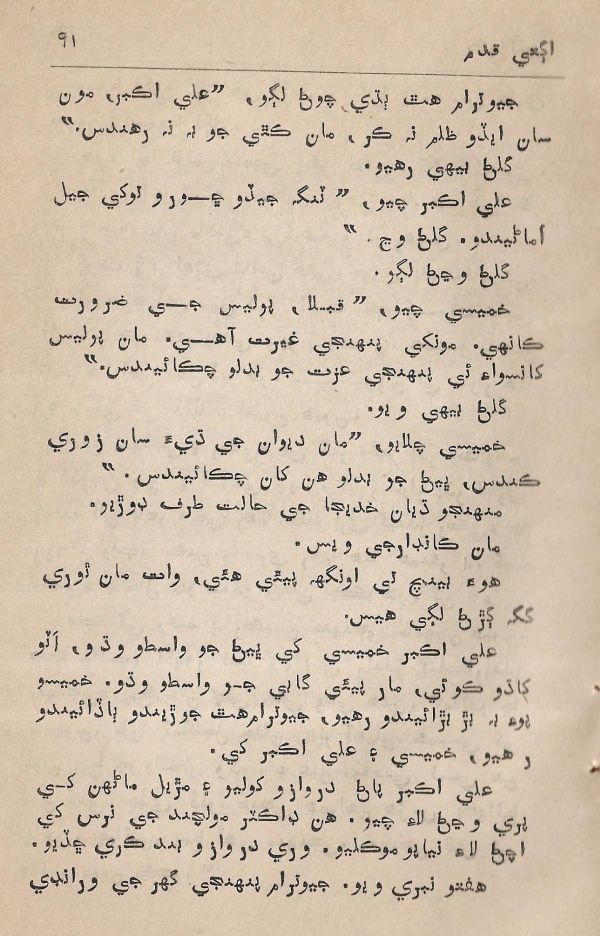 اڳتي قدم ۹۱
جيوترام هٿ ٻڌي چوڻ لڳو، ”علي اڪبر، مون
سان ايڏو ظلم نہ ڪر، مان ڪٿي جو بہ نہ رهندس.“
گلڻ بيهي رهيو.
علي اڪبر چيو، ”ٽنگہ جيڏو ڇورو ٿوکي جيل
اماڻيندو. گلڻ وڃ.“
گلڻ وڃڻ لڳو.
خميسي چيو، ”قبلا، پوليس جي ضرورت
ڪانهي. مونکي پنهنجي غيرت آهي. مان پوليس
کانسواءِ ئي پنهنجي عزت جو بدلو چڪائيندس.“
گلڻ بيهي ويو.
خميسي چلايو، ”مان ديوان جي ڌيءَ سان زوري
ڪندس، ڀيڻ جو بدلو هن کان چڪائيندس.“
منهنجو ڌيان خديجا جي حالت طرف ڊوڙيو.
مان ڪانڊارجي ويس.
هوءَ بينچ تي اونگهہ پيئي هئي، وات مان ٿوري
گگہ ڳڙڻ لڳي هيس.
علي اڪبر خميسي کي ڀيڻ جو واسطو وڌو، اَٽو
کاڌو کوئي، مار پيٽي ڳاٻي جو واسطو وڌو. خميسو
پوءِ بہ ٻڙ ٻڙائيندو رهيو، جيوترام هٿ جوڙيندو ٻاڏائيندو
رهيو، خميسي ۽ علي اڪبر کي.
علي اڪبر پاڻ دروازو کوليو ۽ مڙيل ماڻهن کي
پري وڃڻ لاءِ چيو. هن ڊاڪٽر مولچند جي نرس کي
اچڻ لاءِ نياپو موڪليو. وري دروازو بند ڪري ڇڏيو.
هفتو نبري ويو. جيوترام پنهنجي گهر جي ورانڊي